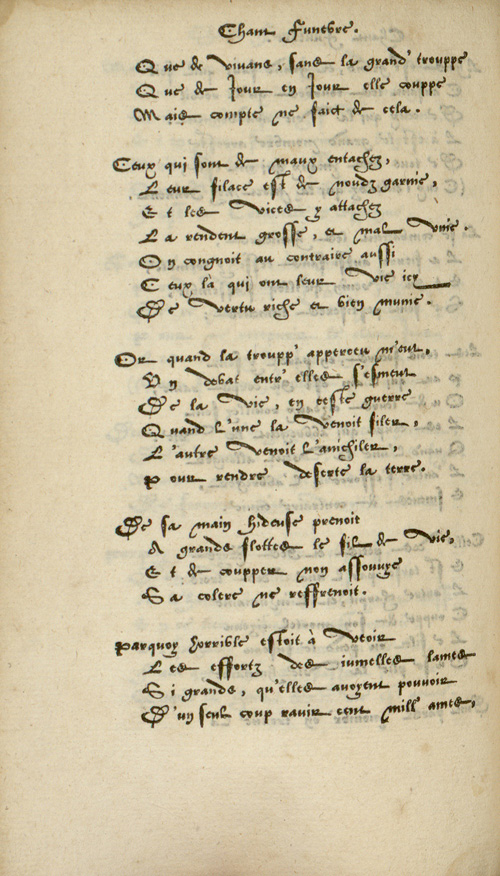 Chant Funebre.
Que de vivans, sans la grand' trouppe
Que de Jour en Jour elle couppe
Mais compte ne faict de cela.
Ceux qui sont de maux entachez,
Leur filace est de noudz garnie,
Et les vices y attachez
La rendent grosse, et mal vnie.
On congnoit au contraire aussi
Ceux là qui ont leur vie icy
De vertu riche et bien munie.
Or quand la troupp' apperceu m'eut,
Vn debat entr' elles s'esmeut
De la vie, en ceste guerre
Quand l'vne la venoit filer,
L'autre venoit l'anichiler,
Pour rendre deserte la terre.
De sa main hideuse prenoit
A grands flottes le fil de vie,
Et de coupper non assouvye
Sa colere ne reffrenoit.
Parquoy horrible estoit à veoir
Les effortz des iumelles lames
Si grands, qu'elles avoyent pouvoir
D'un seul coup ravir cent mill' ames,